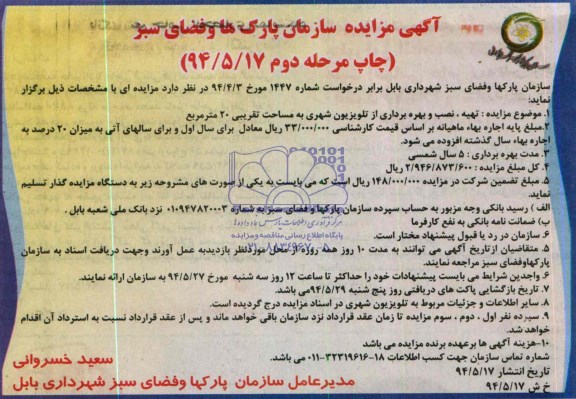 آگهی مزایده سازمان پارک ها وفضای سبز
(چاپ مرحله دوم ۹۴/۵/۱۷)
سازمان پارکها وفضای سبز شهرداری بابل برابر درخواست شماره ۱۴۴۷ مورخ ۹۴/۴/۳ در نظر دارد مزایده ای با مشخصات ذیل برگزار
نماید:
۱. موضوع مزایده : تهیه ، نصب و بهره برداری از تلویزیون شهری به مساحت تقریبی ۲۰ مترمربع
۲.مبلغ پایه اجاره بهاء ماهیانه بر اساس قیمت کارشناسی ۳۳/۰۰۰/۰۰۰ ریال معادل برای سال اول و برای سالهای آتی به میزان ۲۰ درصد به
اجاره بهاء سال گذشته افزوده می شود.
۳. مدت بهره برداری : ۵ سال شمسی
۴. کل مبلغ مزایده : ۲/۹۴۶/۸۷۳/۶۰۰ ریال
۵. مبلغ تضمین شرکت در مزایده ۱۴۸/۰۰۰/۰۰۰ ریال است که می بایست به یکی از صورت های مشروحه زیر به دستگاه مزایده گذار تسلیم
نماید.
الف ) رسید بانکی وجه مزبور به حساب سپرده سازمان پارکها و فضای سبز به شماره ۰۱۰۹۴۷۸۲۰۰۰۳ نزد بانک ملی شعبه بابل .
ب) ضمانت نامه بانکی به نفع کارفرما
۶. سازمان در رد یا قبول پیشنهاد مختار است.
۵. متقاضیان از تاریخ آگهی می توانند به مدت ۱۰ روز همه روزه از محل موردنظر بازدید به عمل آورند وجهت دریافت اسناد به سازمان
پارکها وفضای سبز مراجعه نمایند.
۶. واجدین شرایط می بایست پیشنهادات خود را حداکثر تا ساعت ۱۲ روز سه شنبه مورخ ۹۴/۵/۲۷ به سازمان ارائه نمایند.
۷. تاریخ بازگشایی پاکت های دریافتی روز پنج شنبه ۹۴/۵/۲۹می باشد.
۸. سایر اطلاعات و جزئیات مربوط به تلویزیون شهری در اسناد مزایده درج گردیده است.
۹. سپرده نفر اول ، دوم ، سوم مزایده تا زمان عقد قرارداد نزد سازمان باقی خواهد ماند و پس از عقد قرارداد نسبت به استرداد آن اقدام
خواهد شد.
۱۰-هزینه آگهی ها برعهده برنده مزایده می باشد
شماره تماس سازمان جهت کسب اطلاعات ۱۸-۳۲۳۱۹۶۱۶-۰۱۱ می باشد.
تاریخ انتشار ۹۴/۵/۱۷
خ ش ۹۴/۵/۱۷
سعید خسروانی
مدیرعامل سازمان پارکها وفضای سبز شهرداری بابل